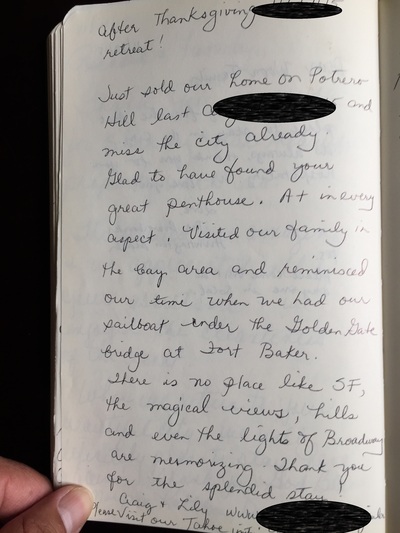 After Thanksgiving
retreat!
Just sold our home on Potrero
Hill last and
miss the city already.
Glad to have found your
great penthouse. A+ in every
aspect. Visited our family in
the bay area and reminisced
our time when we had our
sailboat under the Golden Gate
bridge at Fort Baker.
There is no place like SF,
the magical views, hills
and even the lights of Broadway
are mesmorizing. Thank you
for the splendid stay!
Craig & Lily www.
Please visit our Tahoe